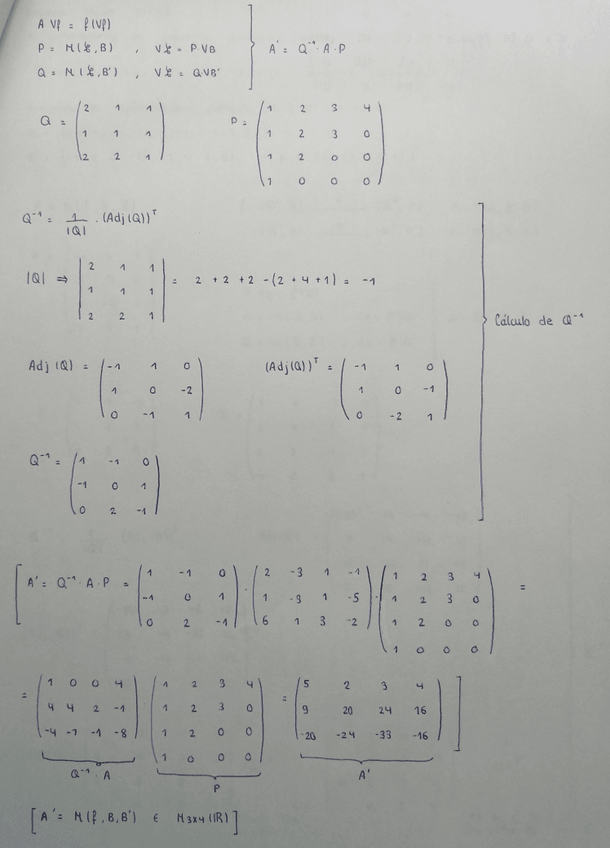 A Vf = f(Vf)
P = M(𝓔, B) , V𝓔 = P VB
Q = M(𝓔, B') , V𝓔 = QVB'
A' = Q⁻¹ · A · P
Q = (2 1 1
1 1 1
2 2 1)
P = (1 2 3 4
1 2 3 0
1 2 0 0
1 0 0 0)
Q⁻¹ = 1/|Q| · (Adj(Q))ᵀ
|Q| ⇒ |2 1 1
1 1 1
2 2 1| = 2 + 2 + 2 - (2 + 4 + 1) = -1
Adj (Q) = (-1 1 0
1 0 -2
0 -1 1)
(Adj(Q))ᵀ = (-1 1 0
1 0 -1
0 -2 1)
Q⁻¹ = (1 -1 0
-1 0 1
0 2 -1)
Cálculo de Q⁻¹
[A' = Q⁻¹ · A · P = (1 -1 0
-1 0 1
0 2 -1) · (2 -3 1 -1
1 -3 1 -5
6 1 3 -2) · (1 2 3 4
1 2 3 0
1 2 0 0
1 0 0 0) =
= (1 0 0 4
4 4 2 -1
-4 -7 -1 -8) · (1 2 3 4
1 2 3 0
1 2 0 0
1 0 0 0) = (5 2 3 4
9 20 24 16
-20 -24 -33 -16)]
Q⁻¹ · A
P
A'
[A' = M(f, B, B') ∈ M3x4 (IR)]